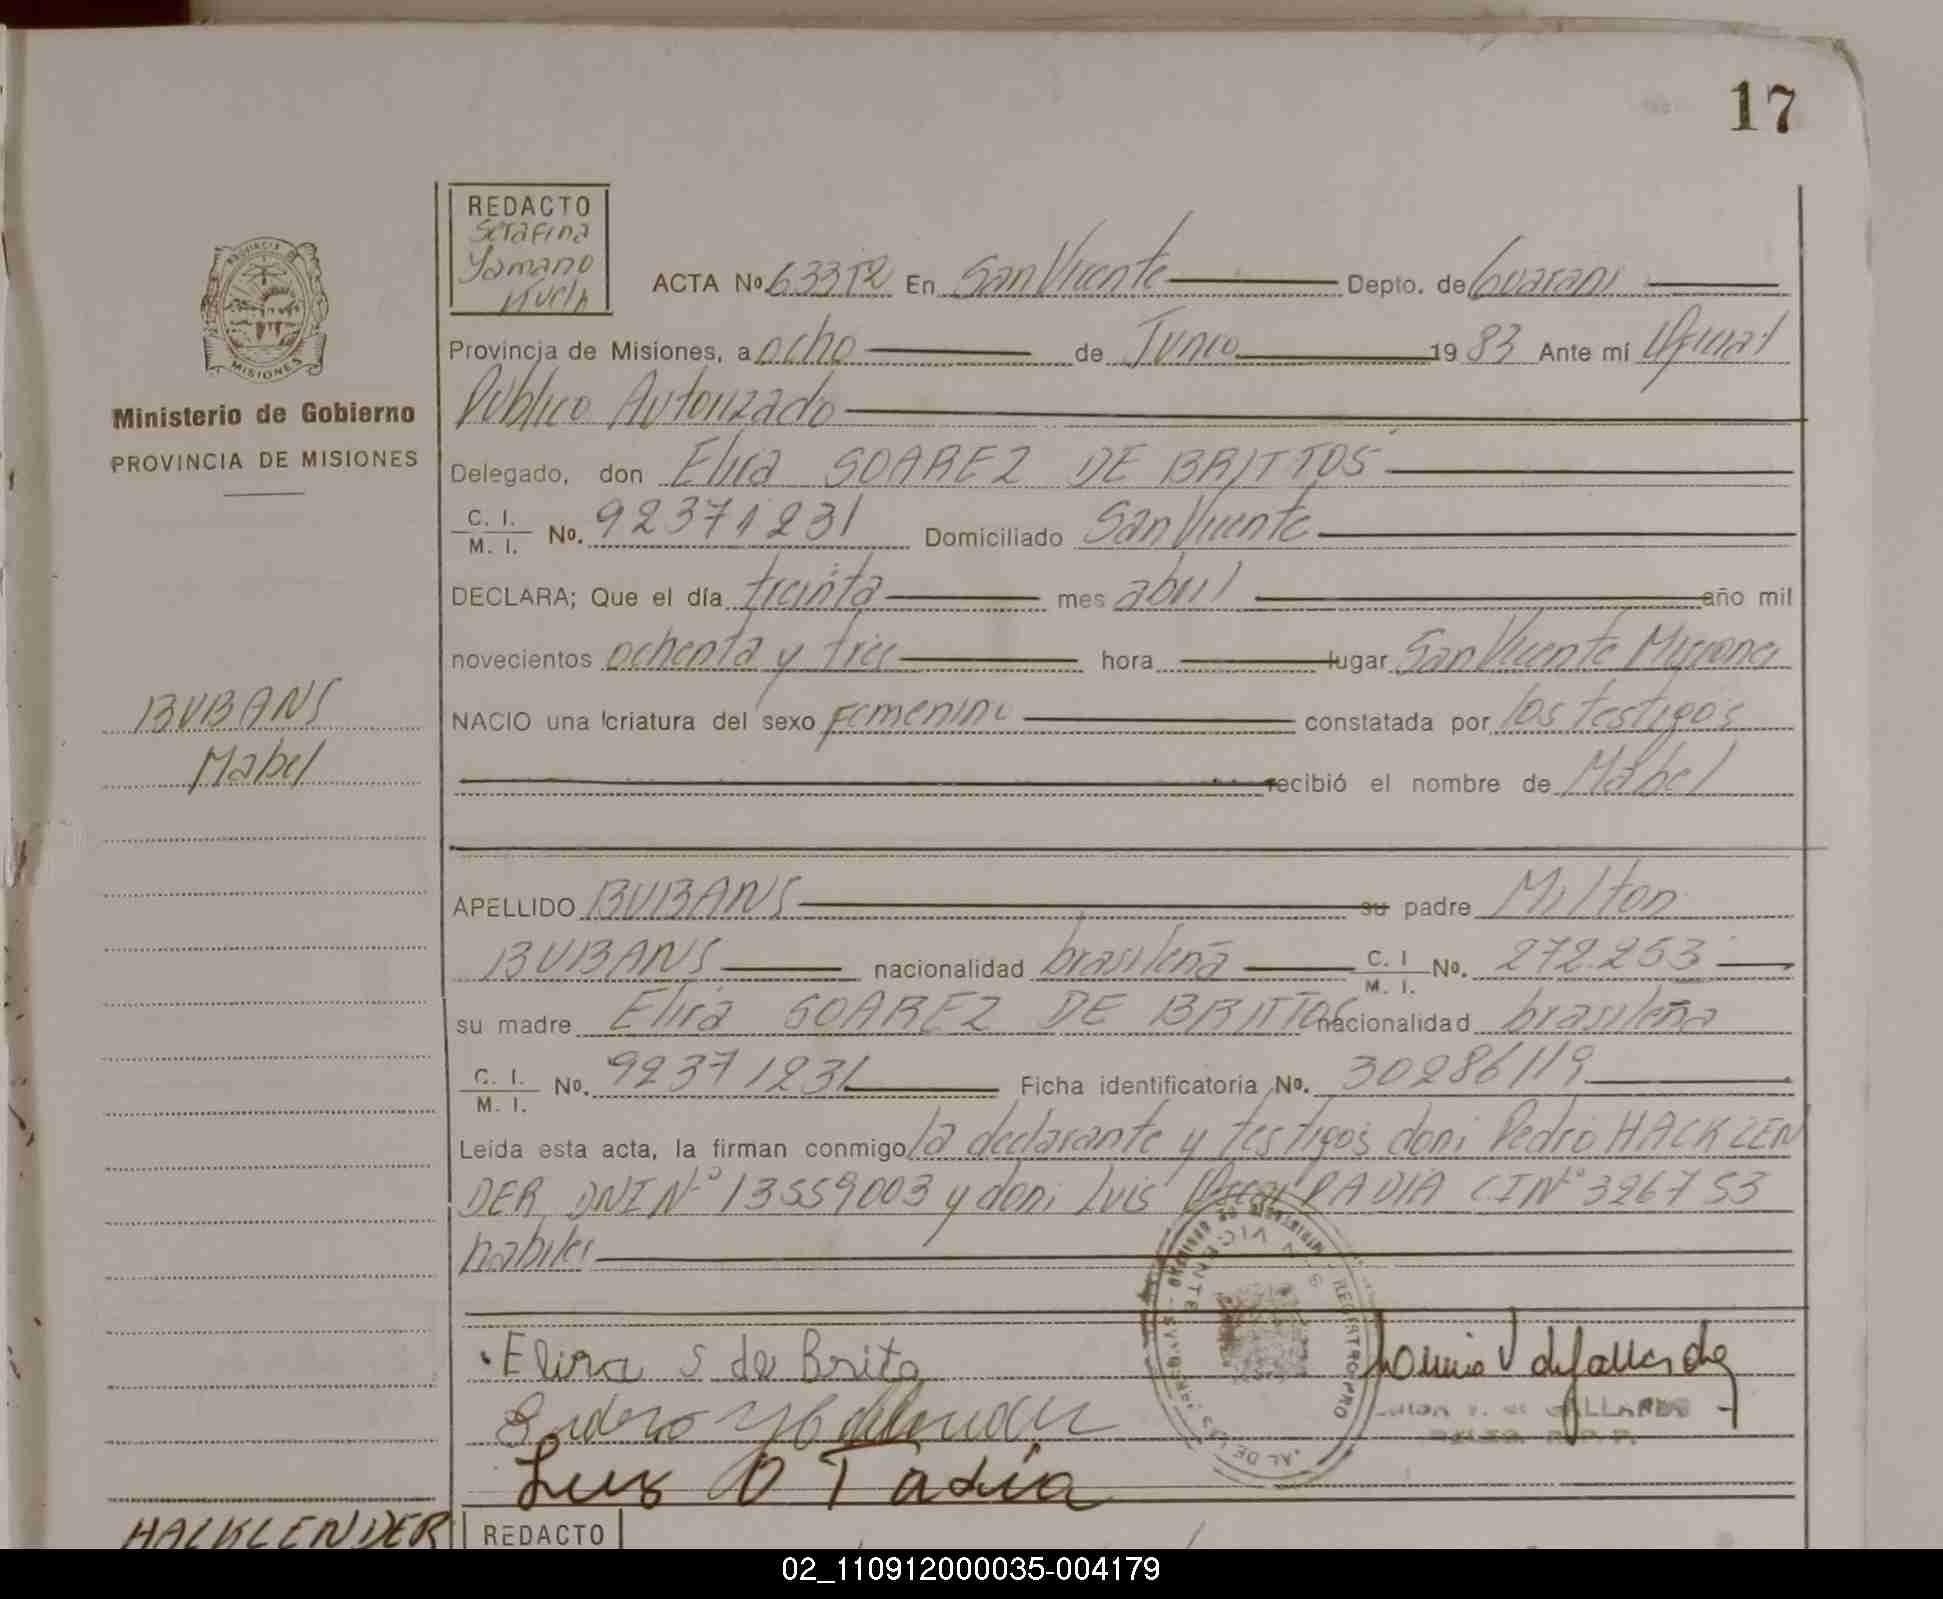 17
REDACTO
Serafina
ACTA No. 633T2 En San Vicente Depto. de Guarani
Provincia de Misiones, a ocho de Junio 1983 Ante mí Oficial
Público Autorizado
PROVINCIA DE
MISIONES
Ministerio de Gobierno
PROVINCIA DE MISIONES
Delegado, don Elira SOAREZ DE BRITTOS
C. I.
M. I. No. 92371231 Domiciliado San Vicente
DECLARA; Que el día treinta mes abril año mil
novecientos ochenta y tres hora lugar San Vicente Misiones
BUBANS
Mabel
NACIO una criatura del sexo Femenino constatada por los testigos
recibió el nombre de Mabel
APELLIDO BUBANS su padre Milton
BUBANS nacionalidad brasileña C. I
M. I. No. 272.253
su madre Elira SOAREZ DE BRITTOS nacionalidad brasileña
C. I.
M. I. No. 92371231 Ficha identificatoria No. 30286119
Leida esta acta, la firman conmigo la declarante y testigos don: Pedro HACKLEN
DER DNI Nº 13559003 y don: Luis Oscar PADIA CI Nº 326753
habiles
Elira S de Brito
SAN VICENTE
REGISTRO PRO
GALLARDO
Luis O Tadia
HACKLENDER
REDACTO
02_110912000035-004179